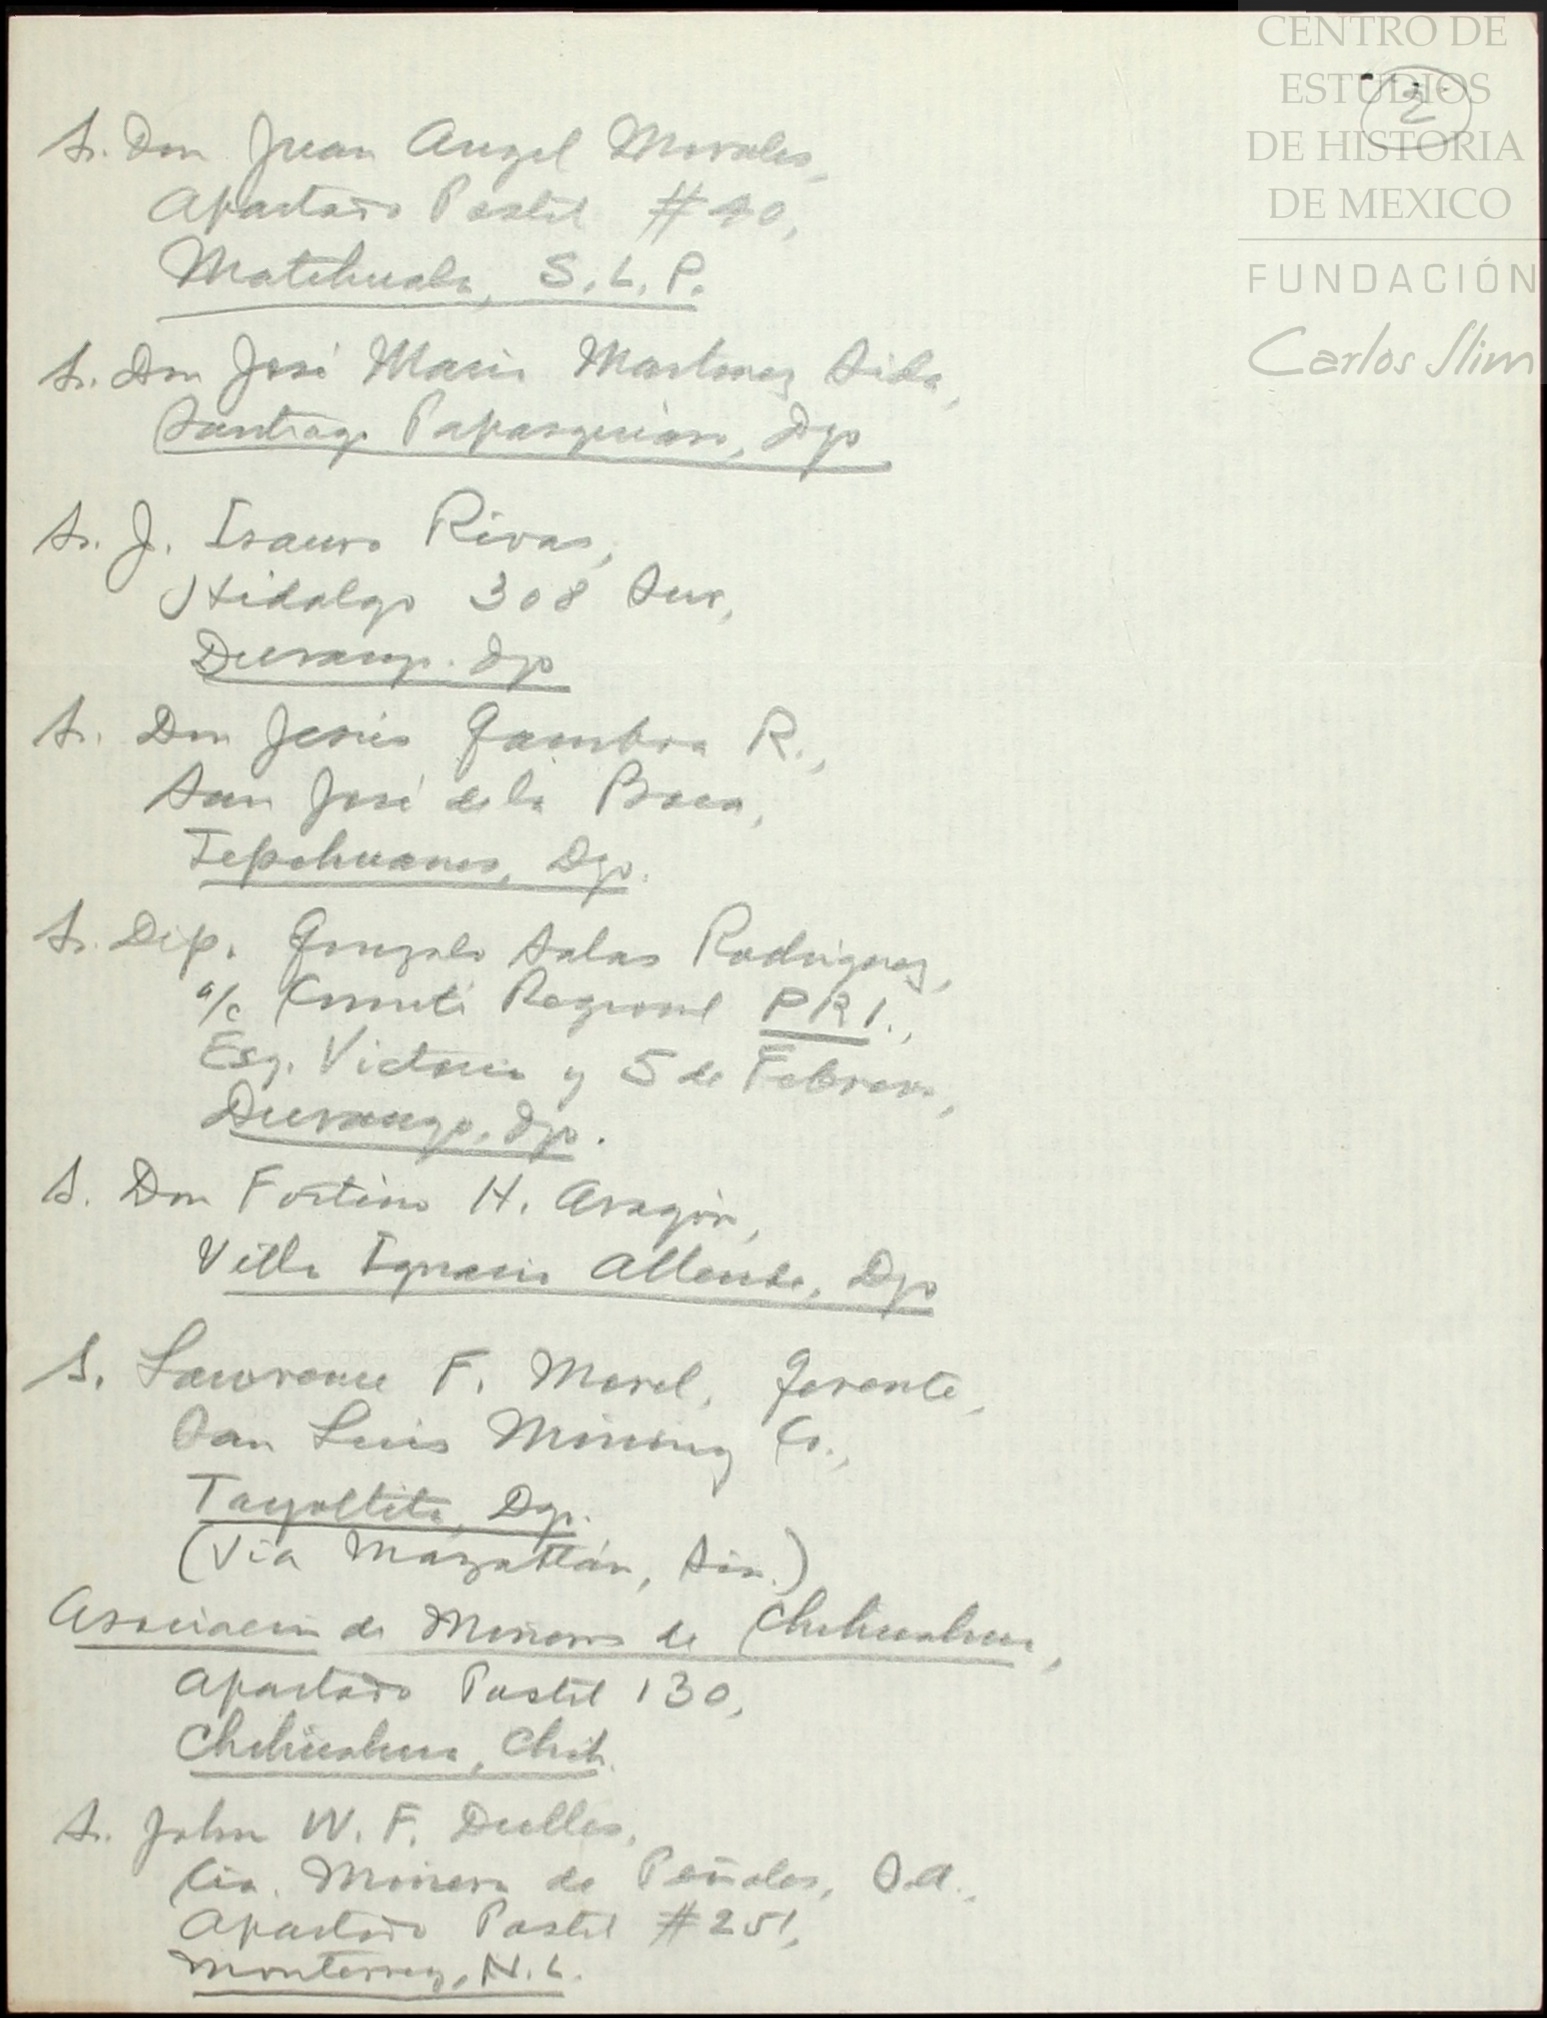 CENTRO DE
ESTUDIOS
DE HISTORIA
DE MEXICO
FUNDACIÓN
Carlos Slim
2
Sr. Don Juan Angel Morales,
Apartado Postal #40,
Matehuala, S.L.P.
Sr. Don José María Martinez
Santiago Papasquiaro, Dgo
Sr. J. Isauro Rivas,
Hidalgo 308 Sur,
Durango. Dgo
Sr. Don Jesús Gamboa R.,
San José de la Boca,
Tepehuanes, Dgo.
Sr. Dip. Gonzalo Salas Rodriguez,
a/c Comité Regional PRI.,
Esq. Victoria y 5 de Febrero,
Durango, Dgo.
S. Don Fortino H. Aragón,
Villa Ignacio Allende, Dgo
S. Lawrence F. Morel, Gerente,
San Luis Mining Co.,
Tayoltita, Dgo.
(Via Mazatlán, Sin.)
Asociación de Mineros de Chihuahua,
Apartado Postal 130,
Chihuahua, Chih.
Sr. John W. F. Dulles,
Cia. Minera de Peñoles, S.A.,
Apartado Postal #251,
Monterrey, N.L.